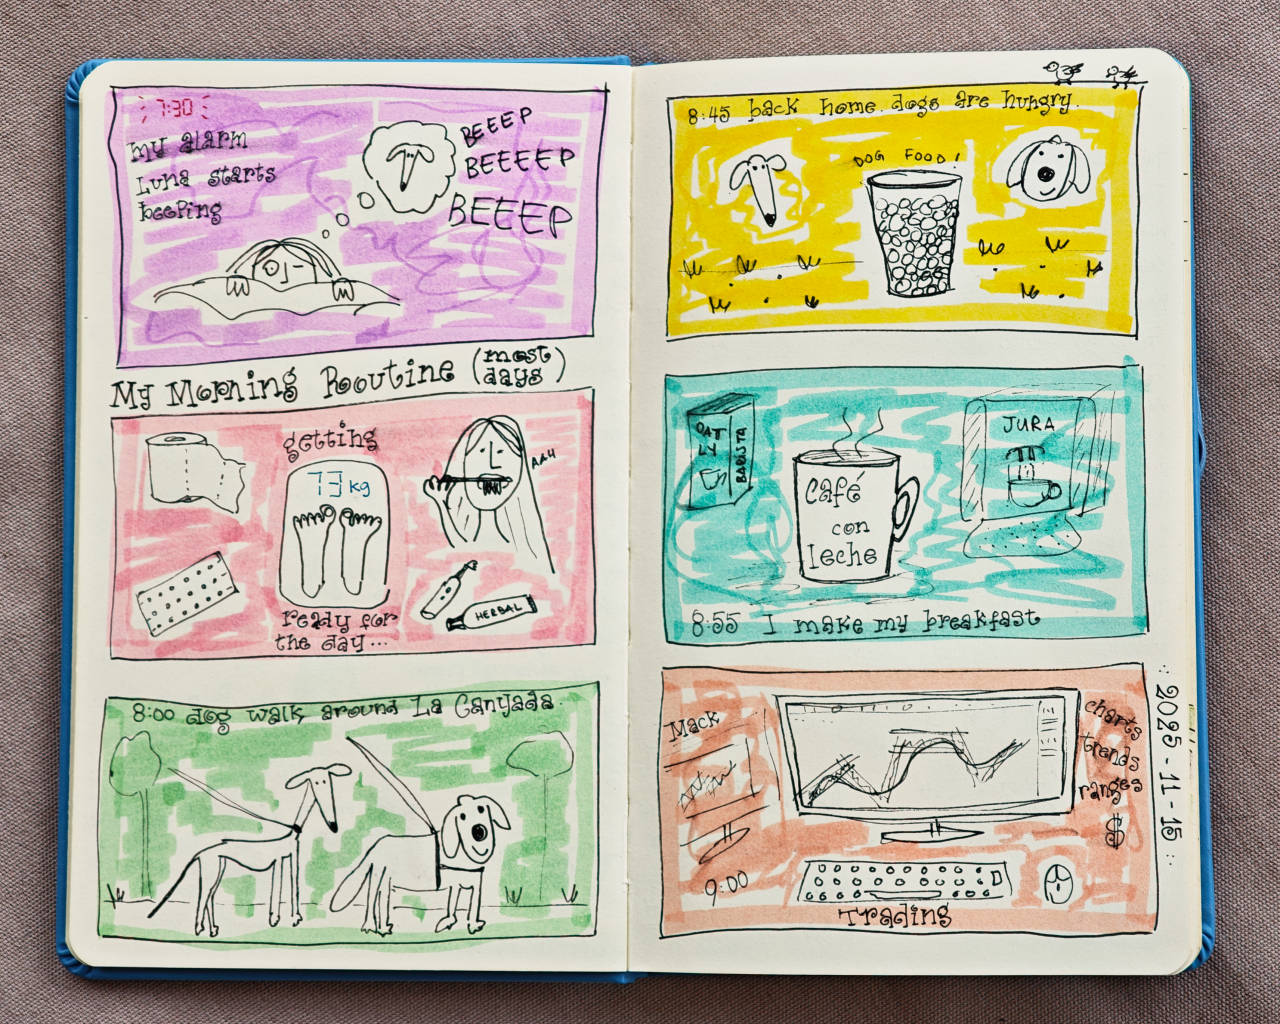 7:30
my alarm
Luna starts
beeping
BEEEP
BEEEEP
BEEEP
My Morning Routine (most days)
getting
73 kg
AAH
HERBAL
ready for
the day...
8:00 dog walk around La Canyada
8:45 back home. dogs are hungry.
DOG FOOD!
OAT
LY
BARISTA
JURA
Café
con
leche
8:55 I make my breakfast
Mack
charts
trends
ranges
$
9:00
Trading
2025-11-15